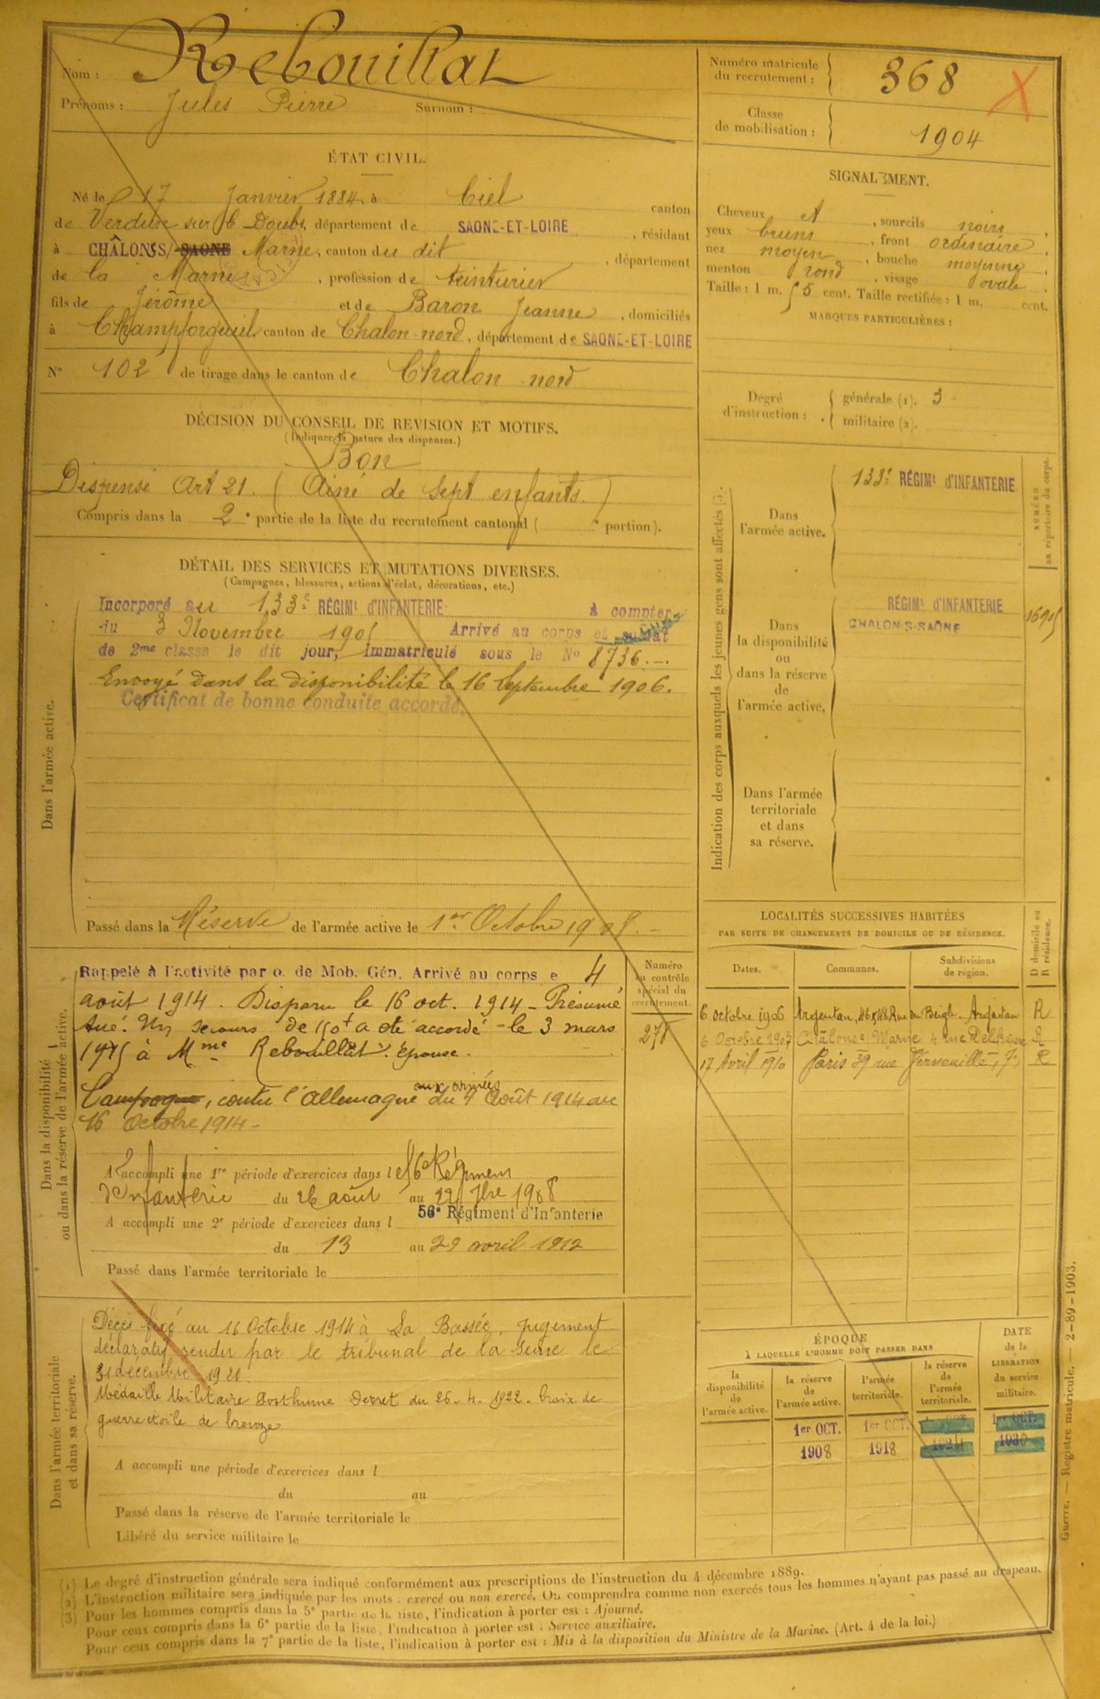 Nom : Rebouillat
Prénoms : Jules Pierre Surnom :
Numéro matricule du recrutement : 368
Classe de mobilisation : 1904
ÉTAT CIVIL.
Né le 17 Janvier 1884 à Ciel canton
de Verdun sur le Doubs, département de SAONE-ET-LOIRE, résidant
à CHÂLONS s/ SAONE Marne, canton du dit, département
de la Marne, profession de teinturier
fils de Jérôme et de Baron Jeanne, domiciliés
à Champforgeuil canton de Chalon-nord, département de SAONE-ET-LOIRE
N° 102 de tirage dans le canton de Chalon nord
SIGNALEMENT.
Cheveux , sourcils noirs,
yeux bruns, front ordinaire,
nez moyen, bouche moyenne,
menton rond, visage ovale.
Taille : 1 m. 55 cent. Taille rectifiée : 1 m. cent.
MARQUES PARTICULIÈRES :
Degré d'instruction : générale (1). 3
militaire (2).
DÉCISION DU CONSEIL DE REVISION ET MOTIFS.
(Indiquer la nature des dispenses.)
Bon
Dispensé Art 21. (Ainé de sept enfants.)
Compris dans la 2e partie de la liste du recrutement cantonal ( e portion).
DÉTAIL DES SERVICES ET MUTATIONS DIVERSES.
(Campagnes, blessures, actions d'éclat, décorations, etc.)
Dans l'armée active.
Incorporé au 133e RÉGIMt D'INFANTERIE à compter
du 3 Novembre 1905 Arrivé au corps et soldat
de 2me classe le dit jour, Immatriculé sous le No 8736.
Envoyé dans la disponibilité le 16 Septembre 1906.
Certificat de bonne conduite accordé.
Passé dans la Réserve de l'armée active le 1er Octobre 1908.
Indication des corps auxquels les jeunes gens sont affectés
NUMÉRO au répertoire du corps.
Dans l'armée active. 133e RÉGIMt D'INFANTERIE
Dans la disponibilité ou dans la réserve de l'armée active.
RÉGIMt D'INFANTERIE
CHALON-S-SAÔNE
Dans l'armée territoriale et dans sa réserve.
Dans la disponibilité ou dans la réserve de l'armée active.
Numéro au contrôle spécial du recrutement.
278
Rappelé à l'activité par o. de Mob. Gén. Arrivé au corps e 4
août 1914. Disparu le 16 oct. 1914 - Présumé
tué. Un secours de 150f a été accordé - le 3 mars
1915 à Mme Rebouillat. épouse.
Campagne, contre l'Allemagne aux armées du 4 Août 1914 au
16 Octobre 1914 -
A accompli une 1re période d'exercices dans l e 56e Régiment
d'Infanterie du 26 août au 22 7bre 1908
A accompli une 2e période d'exercices dans l 56e Régiment d'Infanterie
du 13 au 29 avril 1912
Passé dans l'armée territoriale le
LOCALITÉS SUCCESSIVES HABITÉES
PAR SUITE DE CHANGEMENTS DE DOMICILE OU DE RÉSIDENCE.
Dates. Communes. Subdivisions de région. D domicile ou R résidence.
6 octobre 1906 Argentan, Rue du Beigle. Argentan R
6 Octobre 1907 Châlons s Marne 4 rue R
17 Avril 1910 Paris 39 rue R
Dans l'armée territoriale et dans sa réserve.
Décès fixé au 16 Octobre 1914 à La Bassée, jugement
déclaratif rendu par le tribunal de la Seine le
31 décembre 1921.
Médaille Militaire Posthume Décret du 26-4-1922. Croix de
guerre étoile de bronze
A accompli une période d'exercices dans l
du au
Passé dans la réserve de l'armée territoriale le
Libéré du service militaire le
ÉPOQUE
À LAQUELLE L'HOMME DOIT PASSER DANS
la disponibilité de l'armée active.
la réserve de l'armée active.
l'armée territoriale.
la réserve de l'armée territoriale.
DATE de la LIBÉRATION du service militaire.
1er OCT. 1er OCT. 1er OCT.
1908 1918 1930
(1) Le degré d'instruction générale sera indiqué conformément aux prescriptions de l'instruction du 4 décembre 1889.
(2) L'instruction militaire sera indiquée par les mots : exercé ou non exercé. On comprendra comme non exercés tous les hommes n'ayant pas passé au drapeau.
(3) Pour les hommes compris dans la 5e partie de la liste, l'indication à porter est : Ajourné.
Pour ceux compris dans la 6e partie de la liste, l'indication à porter est : Service auxiliaire.
Pour ceux compris dans la 7e partie de la liste, l'indication à porter est : Mis à la disposition du Ministre de la Marine. (Art. 4 de la loi.)
Guerre. — Registre matricule. — 2-89-1903.